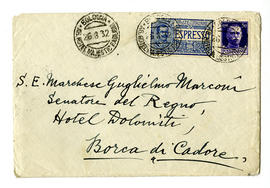 BOLOGNA
26.8.32
ESPRESSO
S. E. Marchese Guglielmo Marconi
Senatore del Regno,
Hotel Dolomiti,
Borca di Cadore,